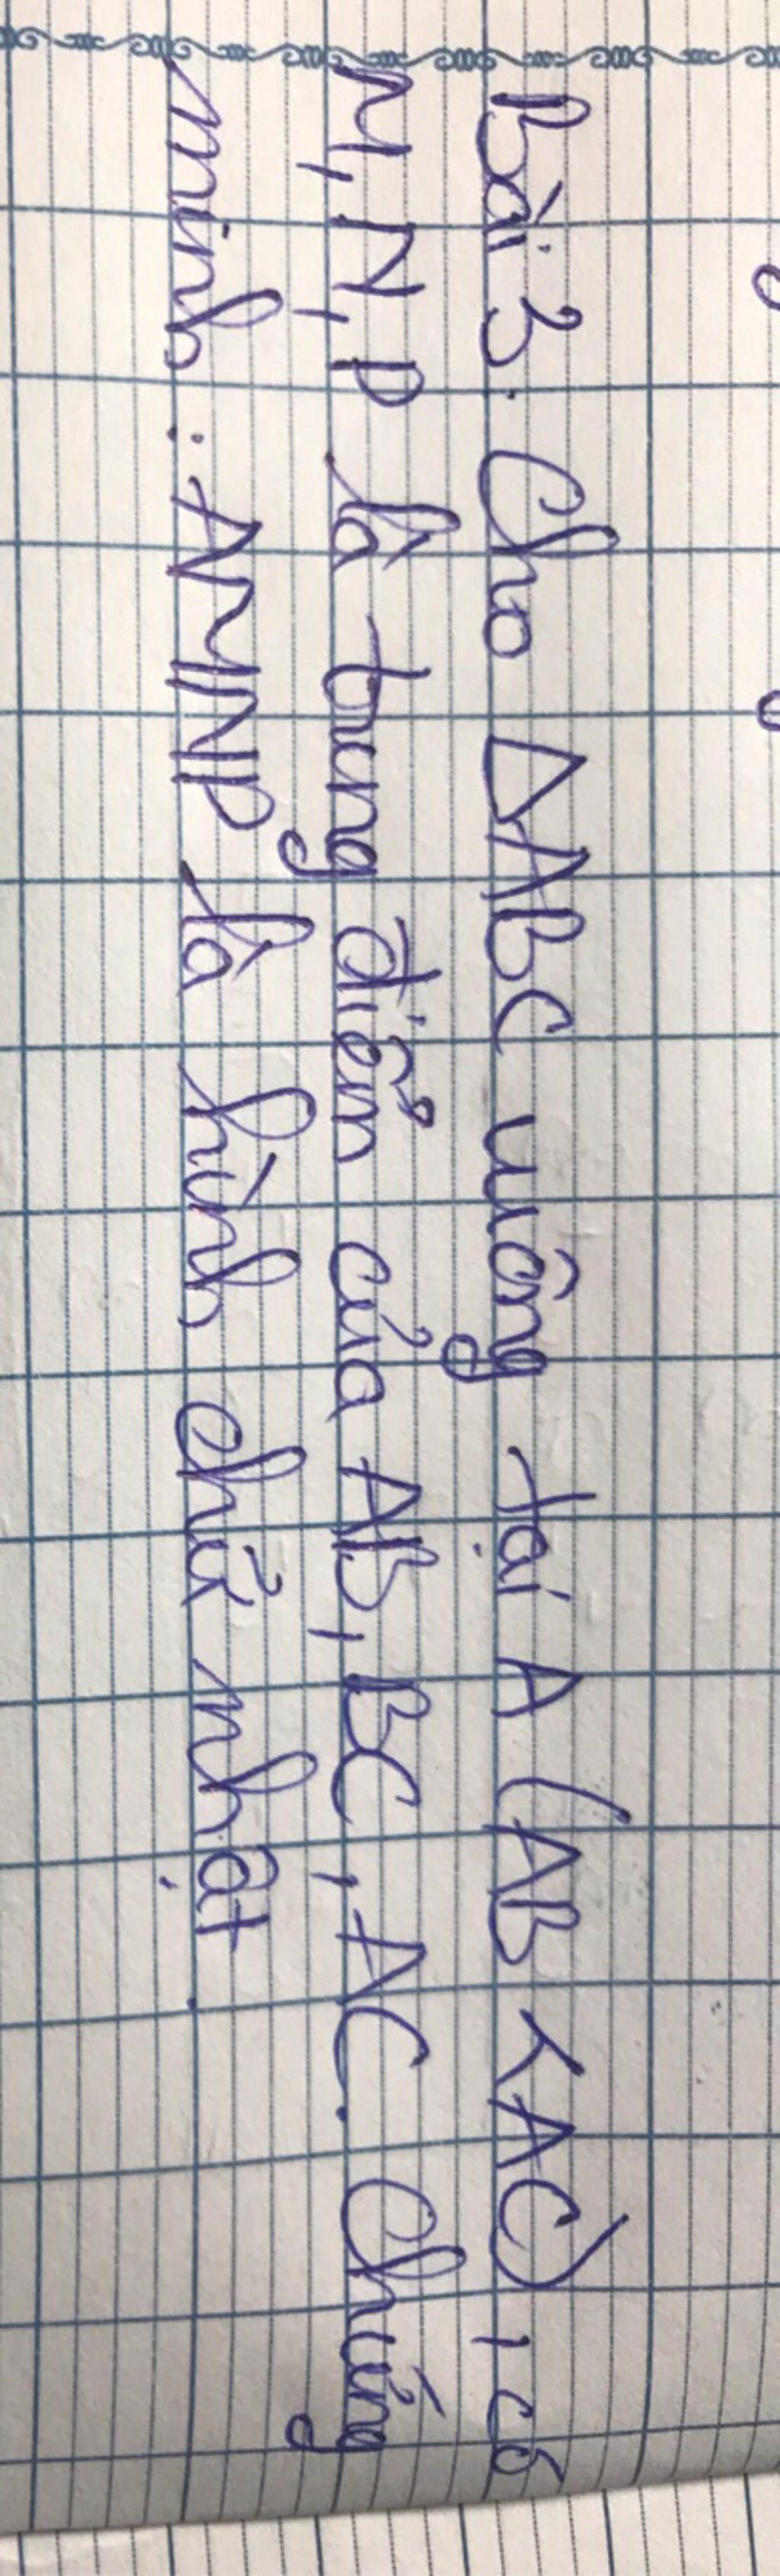 Bài 3. Cho ΔABC vuông tại A (AB < AC), có
M, N, P là trung điểm của AB, BC, AC. Chứng
minh : AMNP là hình chữ nhật.